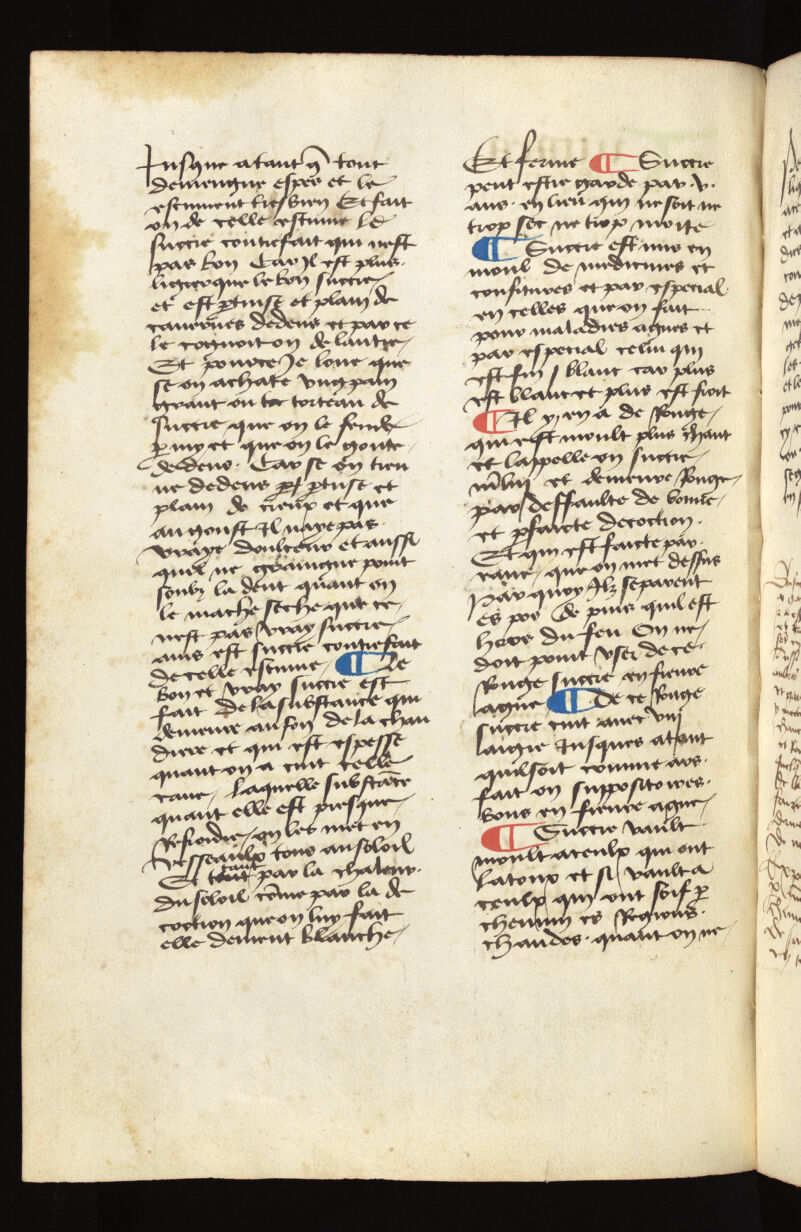 Jusque atant q̄ tout
demeugne espes et le
escument tresbien Et fait
on de celle escume le
succre contrefait qui nest
pas bon Car Jl est plus
legier que le bon succre
et est ꝑtuse et plain de
cauernes dedens et par ce
le cognoit on de lautre
Et pource Je loue que
se on achate vng pain
grant ou torteau de
succre que on le fende
ꝑmy et que on le gouste
dedens. Car se on treu
ue dedens ꝑtuse et
plain de creux et que
au goust Jl naye pas
vraye doulceur et aussi
quil ne graingne point
soubz la dent quant on
le mache seche que ce
nest pas vray succre
mais est succre contrefait
de celle escume. ¶ Le
bon et vray succre est
fait de la substance qui
demeure au fons de la chau
diere et qui est espesse
quant on a cuit celle
eaue. Laquelle substāce
quant elle est presque
Refroidie on les met en
vesseaulx tous au soleil
Et tant par la chaleur
du soleil cōme par la de
coction que on luy fait
elle deuient blanche
Et ferme ¶ Succre
peut estre garde par .v.
ans. en lieu qui ne soit ne
trop sec ne trop moite
¶ Succre est mis en
moul de medicines et
confitures et par especial
en celles que on fait
pour maladies agues et
par especial celui qui
est fin / blanc car plus
est blanc et plus est froit
¶ Jl y en a de Rouge
qui est moult plus chaut
et lappelle on succre
et demeure Rouge
par deffaulte de bonne
et ꝑfaicte decoction.
Et qui est faicte par
eaue, que on met dessus
Par quoy Jlz separent
es pos De puis quil est
hors du feu On ne
doit point vser de ce
Rouge succre en fieure
ague ¶ De ce Rouge
succre cuit auec vin
aigre Jusques atant
quil soit comme ars.
fait on suppositoires.
bons en fieure ague
¶ Succre vault
moult a ceulx qui ont
la toux et si vault a
ceulx qui ont soif ꝑ
chemin es Regions.
chaudes. quant on ne